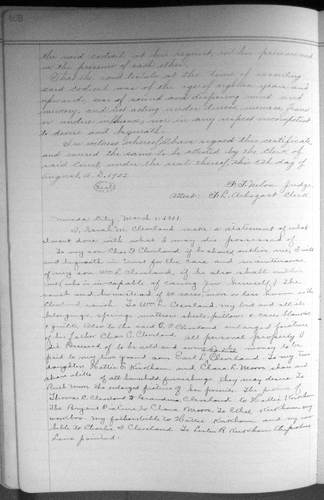 408
the said codicil at her request, in her presence and
in the presence of each other.
That the said testator at the time of executing
said codicil was of the age of eighteen years and
upward, was of sound and disposing mind and
memory, and not acting under duress, menace, fraud
or undue influence, nor in any respect incompetent
to devise and bequeath.
In witness whereof, I have signed this certificate
and caused the same to be attested by the Clerk of
said Court under the seal thereof, this day of
August A. D. 1922.
Judge.
(Seal)
Attest: Clerk
City, March 1, 1921.
I, Sarah M. Cleveland make a statement of what
I want done with what I may die possessed of.
To my son Chas F. Cleveland if he should outlive me, I will
and bequeath in trust for the care and maintenance
of my son Wm R. Cleveland, if he also shall outlive
me (who is in-capable of caring for himself) The
ranch and homestead of 80 acres, more or less known with
Cleveland ranch. To Wm R. Cleveland, my bed and all its
belongings, springs, mattress, sheets, pillows & cases, blankets
& quilts. Also to the said C. F. Cleveland enlarged picture
of his father Chas E. Cleveland. all personal property I
die possessed of to be sold and to be
paid to my two grand son Earl C. Cleveland. To my two
daughters Hattie E. Kirkham and Clara R. Moon share and
share alike of all household furnishings they may desire. To
Moon the picture of her father. The picture of
Thomas C. Cleveland & Grandma Cleveland to Hattie Kirkham
The Bryant Picture to Clara Moon. To Ethel Kirkham my
workbox. My father's bible to Hattie Kirkham and my own
bible to Charles F. Cleveland. To Kirkham the picture
Lena painted.